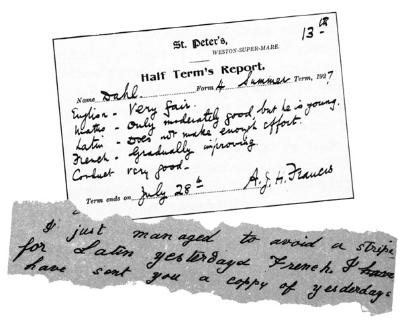 13th
St. Peter's,
WESTON-SUPER-MARE.
Half Term's Report.
Name Dahl. Form 4 Summer Term, 1927
English - Very fair.
Maths - Only moderately good but he is young.
Latin - Does not make enough effort.
French - Gradually improving
Conduct very good -
Term ends on July 28th A. J. H. Francis
I just managed to avoid a stripe
for Latin yesterdayd French. I have
have sent you a coppy of yesderdays